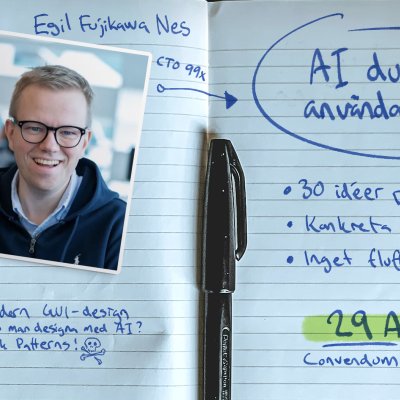 Egil Fujikawa Nes
CTO 99x
dern GUI-design
man designa med AI?
k Patterns!
AI du
använda
• 30 idéer
• Konkreta
• Inget fluf
29 A
Convendum